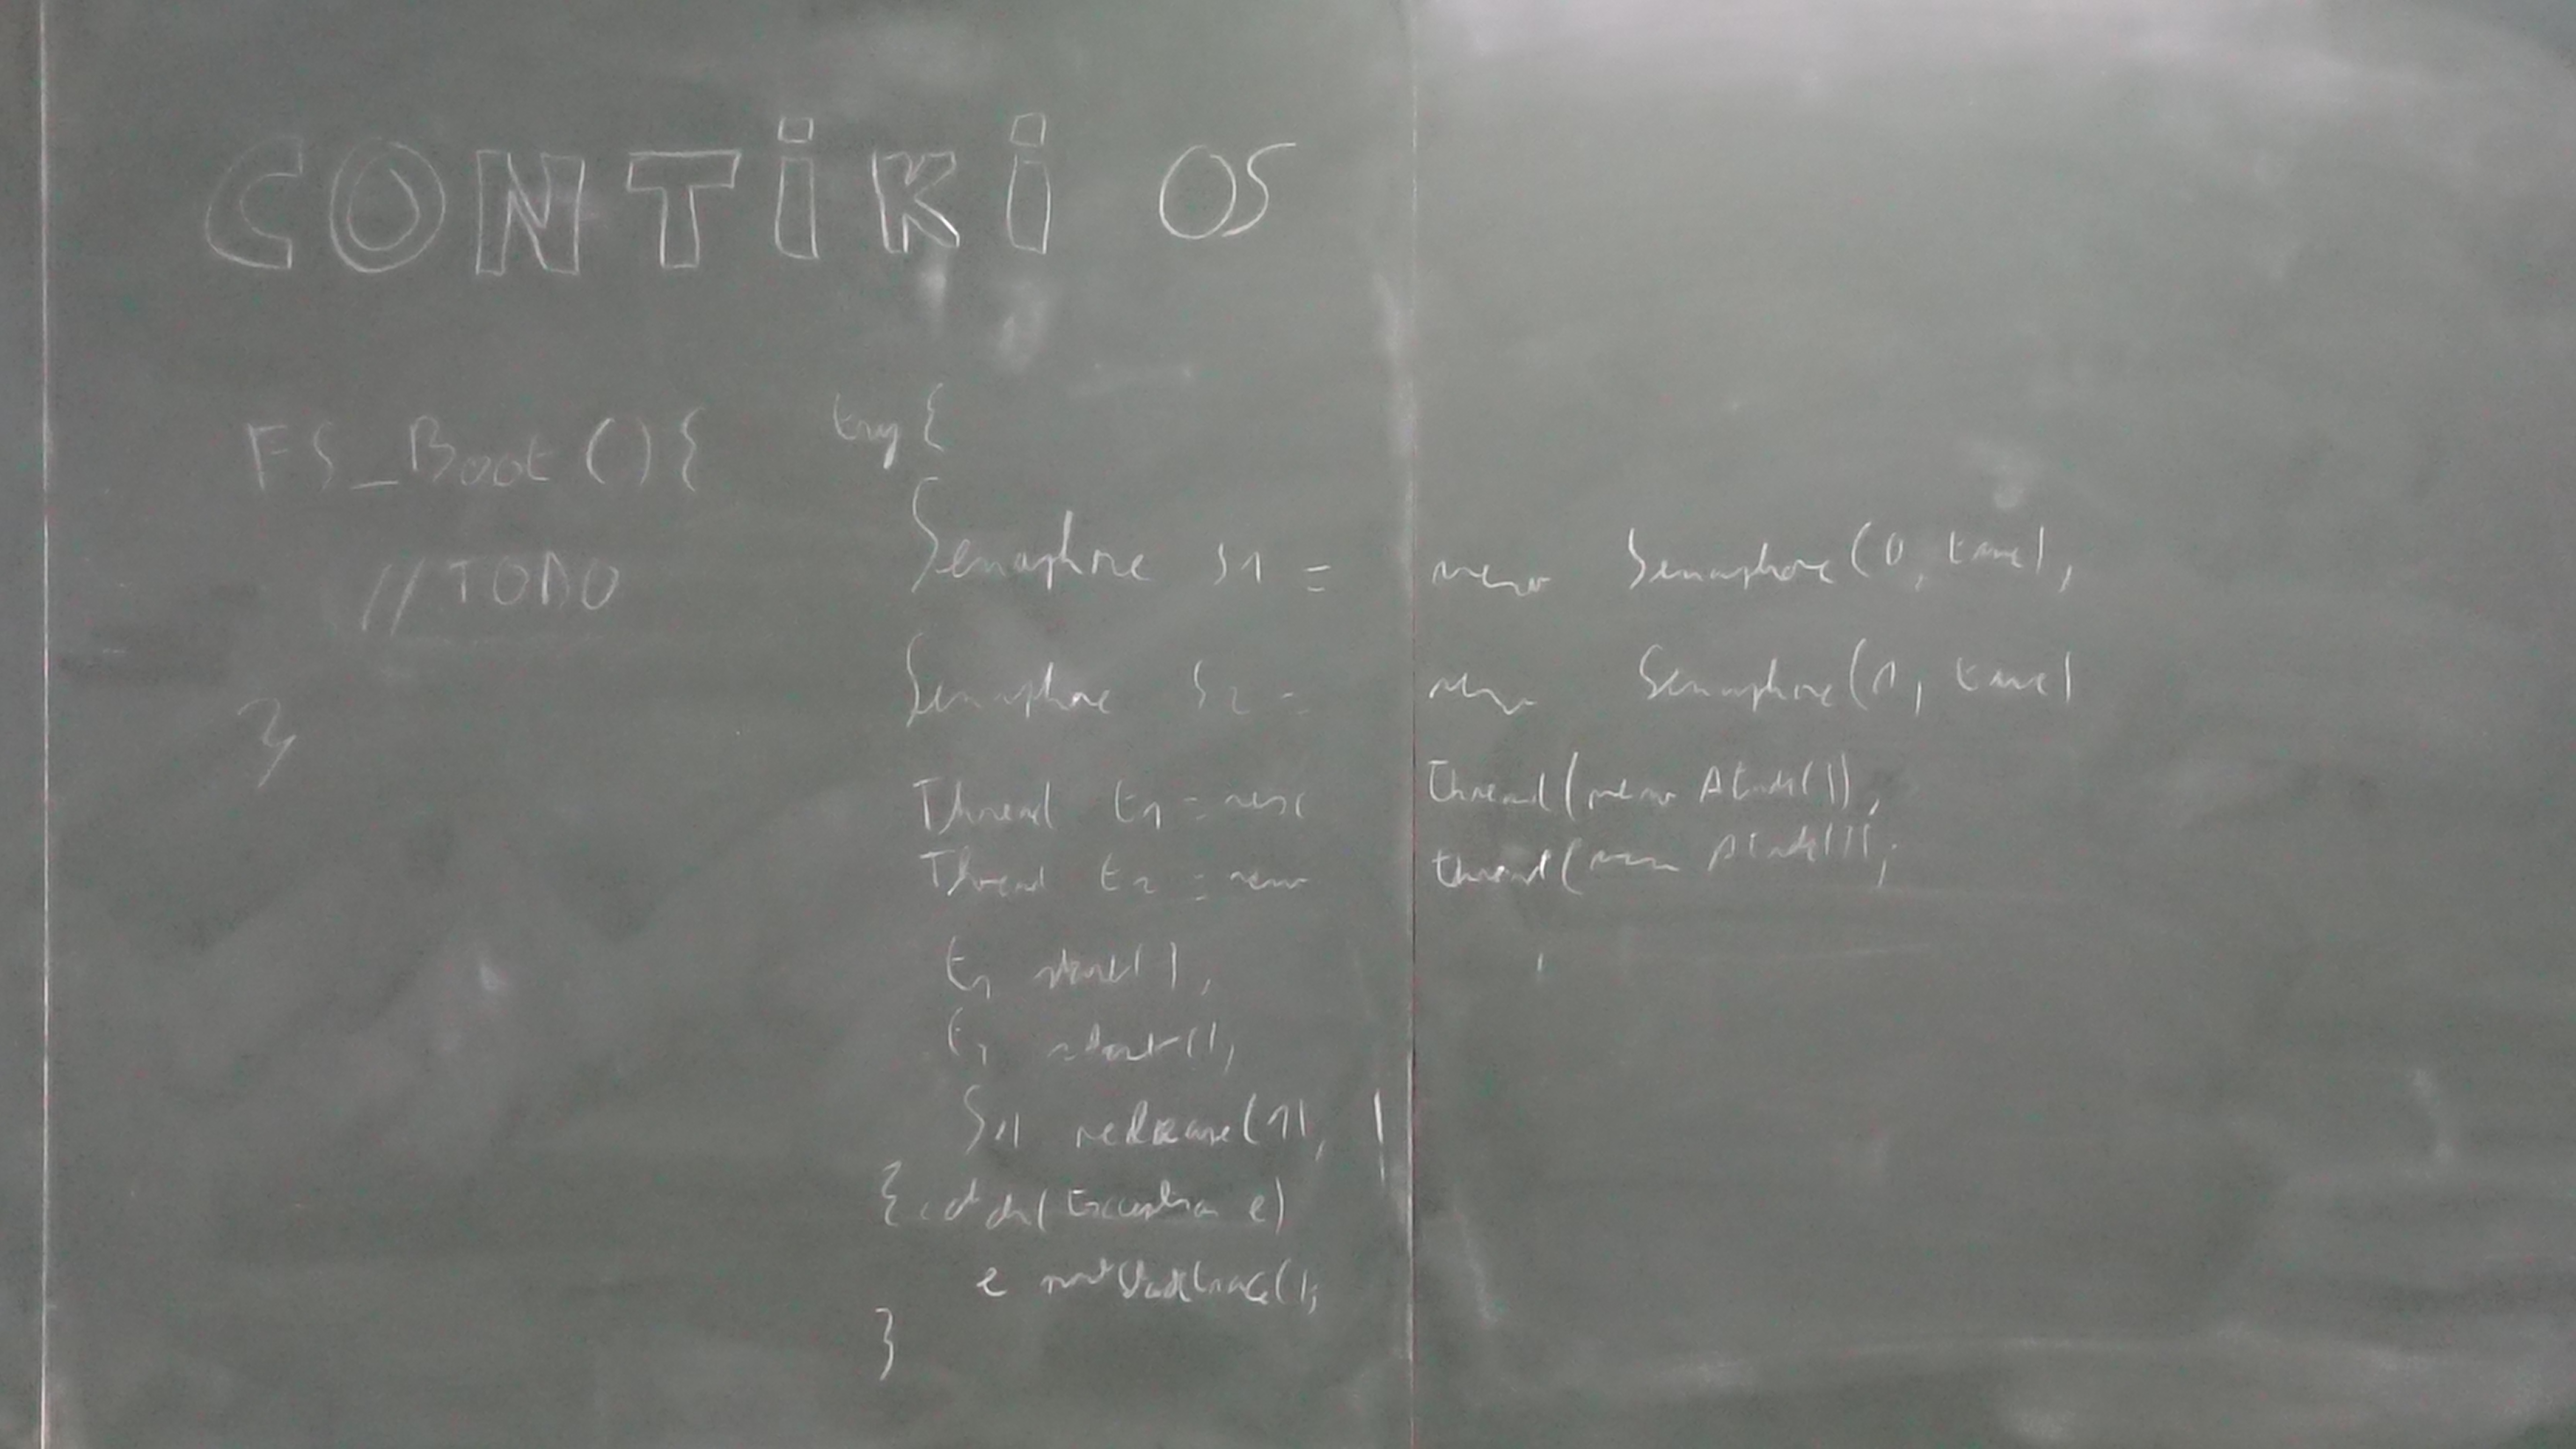 CONTiKi OS
FS_Boot(){
//TODO
}
try{
Semaphore s1 = new Semaphore(0, true),
Semaphore s2 = new Semaphore(1, true)
Thread t1 = new thread(new
Thread t2 = new thread(new
t1 start(),
start(),
S1 release(1),
{ catch(Exception e)
e printStacktrace();
}